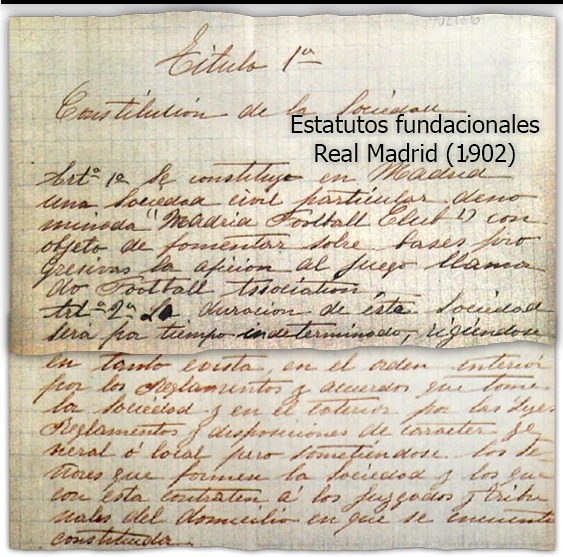 Título 1º
Constitución de la Sociedad
Estatutos fundacionales
Real Madrid (1902)
Artº 1º Se constituye en Madrid
una Sociedad civil particular deno
minada "Madrid Football Club" con
objeto de fomentar sobre bases pro
gresivas la afición al juego llama
do Football Association.
Artº 2º La duración de ésta Sociedad
será por tiempo indeterminado, rigiéndose
en tanto exista, en el orden interior
por los Reglamentos y acuerdos que tome
la Sociedad y en el exterior por las Leyes
Reglamentos y disposiciones de caracter ge-
neral ó local pero sometiendose los se-
ñores que formen la Sociedad y los que
con esta contraten á los juzgados y tribu
nales del domicilio en que se encuentre
constituida